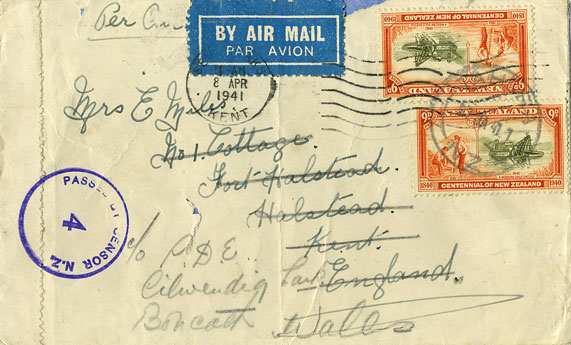 Per Air
BY AIR MAIL
PAR AVION
8 APR
1941
KENT
CENTENNIAL OF NEW ZEALAND
1840 1940
9D
Mrs E Miles
No 1. Cottage
Fort Halstead
Halstead
Kent
England
c/o A.D.E.
Cilwendig Park
Boncath
Wales
PASSED BY CENSOR N.Z.
4
9D
NEW ZEALAND
9D
1840 CENTENNIAL OF NEW ZEALAND 1940